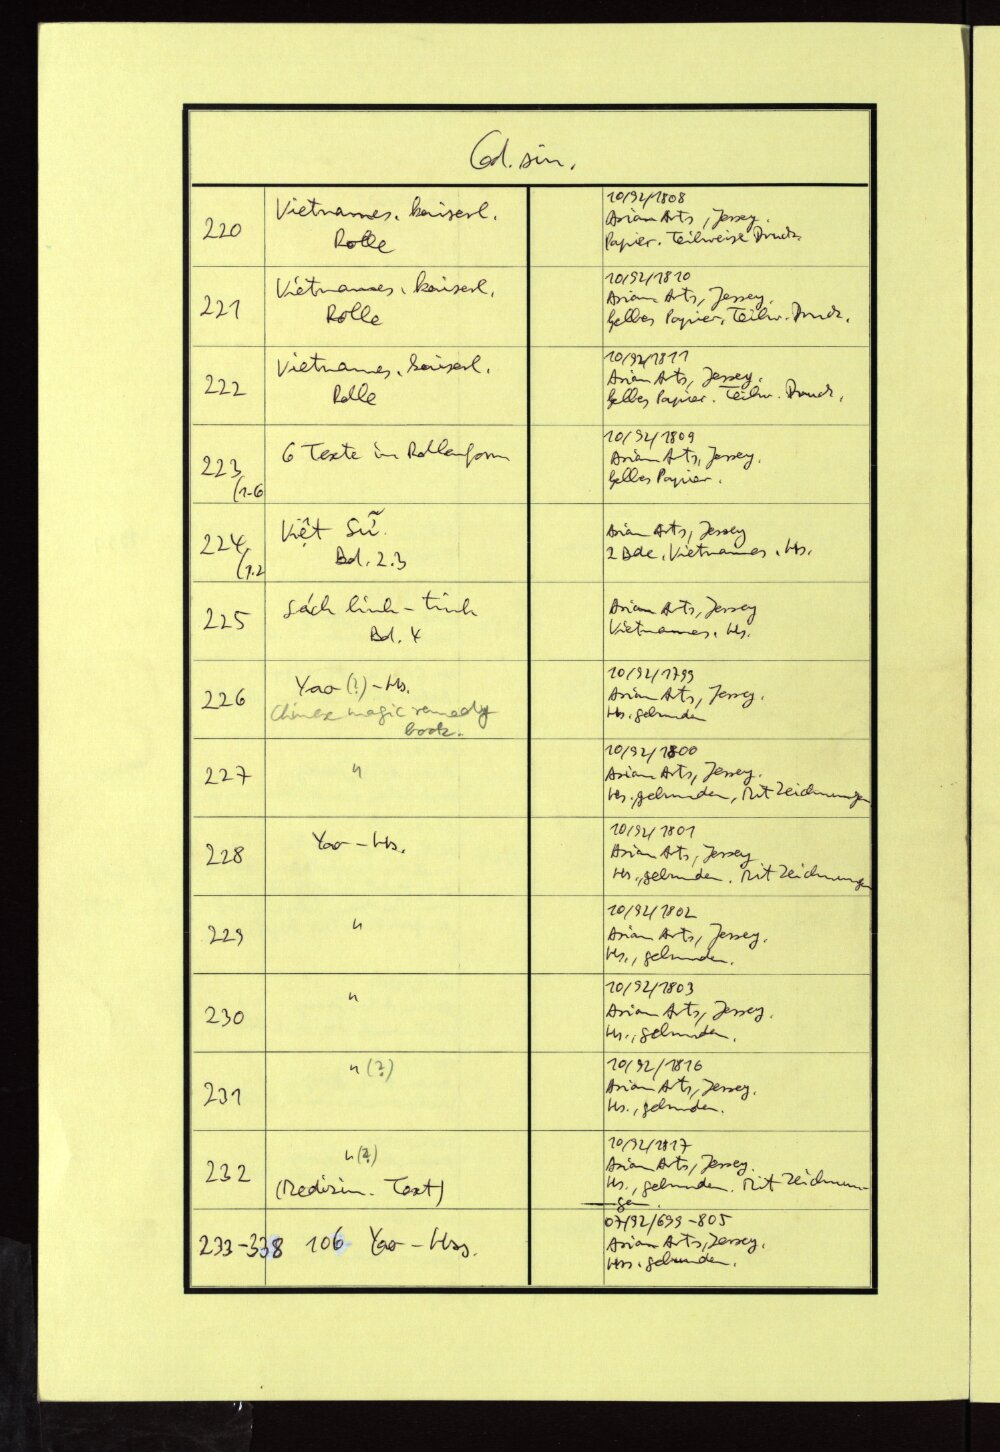 Cod. sin.
220 Vietnames. kaiserl. Rolle
10/92/1808
Asian Arts, Jersey.
Papier. Teilweise Druck.
221 Vietnames. kaiserl. Rolle
10/92/1810
Asian Arts, Jersey.
Gelbes Papier, Teilw. Druck.
222 Vietnames. kaiserl. Rolle
10/92/1811
Asian Arts, Jersey.
Gelbes Papier. Teilw. Druck.
223 (1-6 6 Texte in Rollenform
10/92/1809
Asian Arts, Jersey.
Gelbes Papier.
224 (1.2 Việt Sữ.
Bd. 2.3
Asian Arts, Jersey
2 Bde. Vietnames. Hs.
225 Sách linh-tinh
Bd. 4
Asian Arts, Jersey
Vietnames. Hs.
226 Yao (?) - Hs.
Chinese magic remedy
book.
10/92/1799
Asian Arts, Jersey.
Hs. gebunden
227 "
10/92/1800
Asian Arts, Jersey.
Hs., gebunden, Mit Zeichnungen
228 Yao - Hs.
10/92/1801
Asian Arts, Jersey
Hs., gebunden. Mit Zeichnungen
229 "
10/92/1802
Asian Arts, Jersey.
Hs., gebunden.
230 "
10/92/1803
Asian Arts, Jersey.
Hs., gebunden.
231 " (?)
10/92/1816
Asian Arts, Jersey.
Hs., gebunden.
232 " (?)
(Medizin. Text)
10/92/1817
Asian Arts, Jersey.
Hs., gebunden. Mit Zeichnun-
gen.
233-338 106 Yao - Hss.
07/92/699-805
Asian Arts, Jersey.
Hss. gebunden.